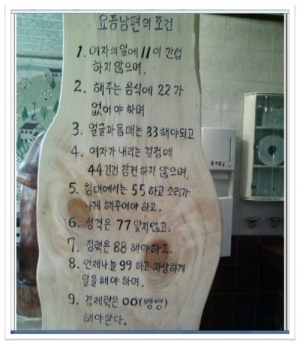 요즘남편의 조건
1. 여자의 일에 11이 간섭
하지 않으며.
2. 해주는 음식에 22가
없어야 하며
3. 얼굴과 몸매는 33해야되고
4. 여자가 내리는 결정에
44건건 참견 하지 않으며.
5. 침대에서는 55 하고 소리가
나게 해주어야 하고.
6. 성격은 77 맞지않고.
7. 정력은 88 해야하고.
8. 언제나 늘 99 하고 자상하게
말을 해야 하며.
9. 경제력은 00(빵빵)
해야한다.